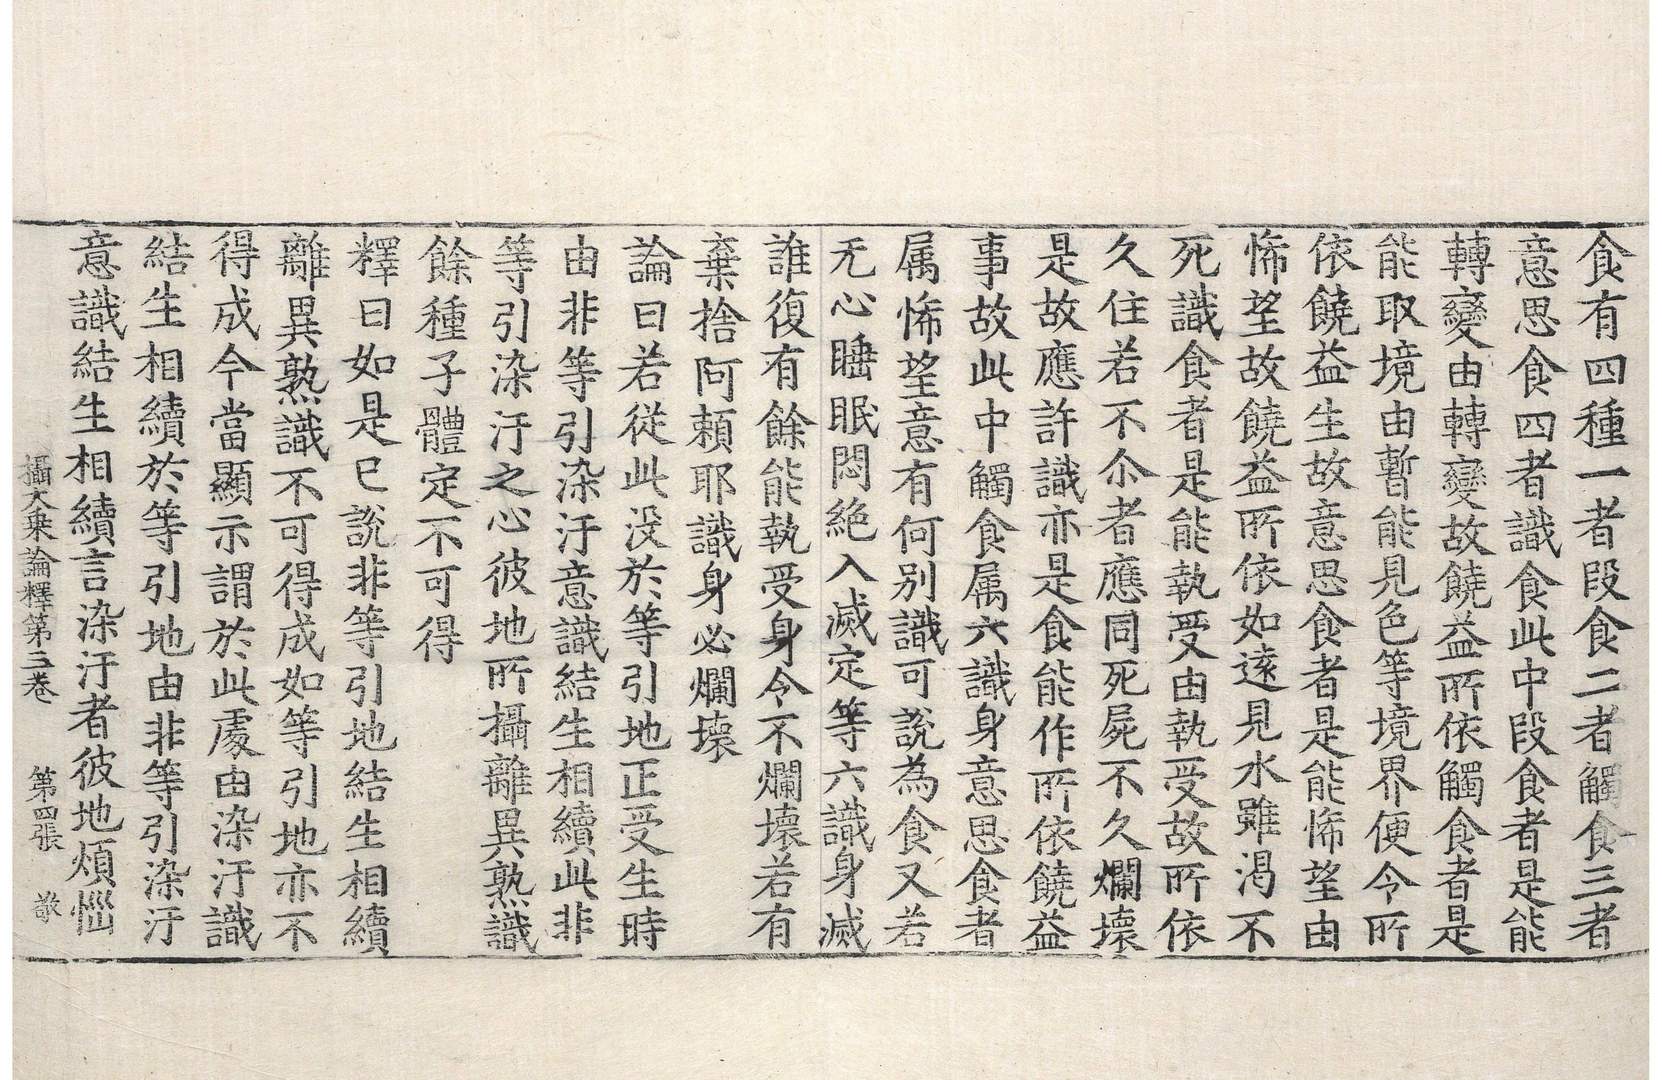 食有四種一者段食二者觸食三者
意思食四者識食此中段食者是能
轉變由轉變故饒益所依觸食者是
能取境由暫能見色等境界便令所
依饒益生故意思食者是能悕望由
悕望故饒益所依如遠見水雖渴不
死識食者是能執受由執受故所依
久住若不尒者應同死屍不久爛壞
是故應許識亦是食能作所依饒益
事故此中觸食属六識身意思食者
属悕望意有何別識可說為食又若
无心睡眠悶絶入滅定等六識身滅
誰復有餘能執受身令不爛壞若有
棄捨阿賴耶識身必爛壞
論曰若從此没於等引地正受生時
由非等引染汙意識結生相續此非
等引染汙之心彼地所攝離異熟識
餘種子體定不可得
釋曰如是已說非等引地結生相續
離異熟識不可得成如等引地亦不
得成今當顯示謂於此處由染汙識
結生相續於等引地由非等引染汙
意識結生相續言染汙者彼地煩惱
攝大乗論釋第三卷 第四張 敬